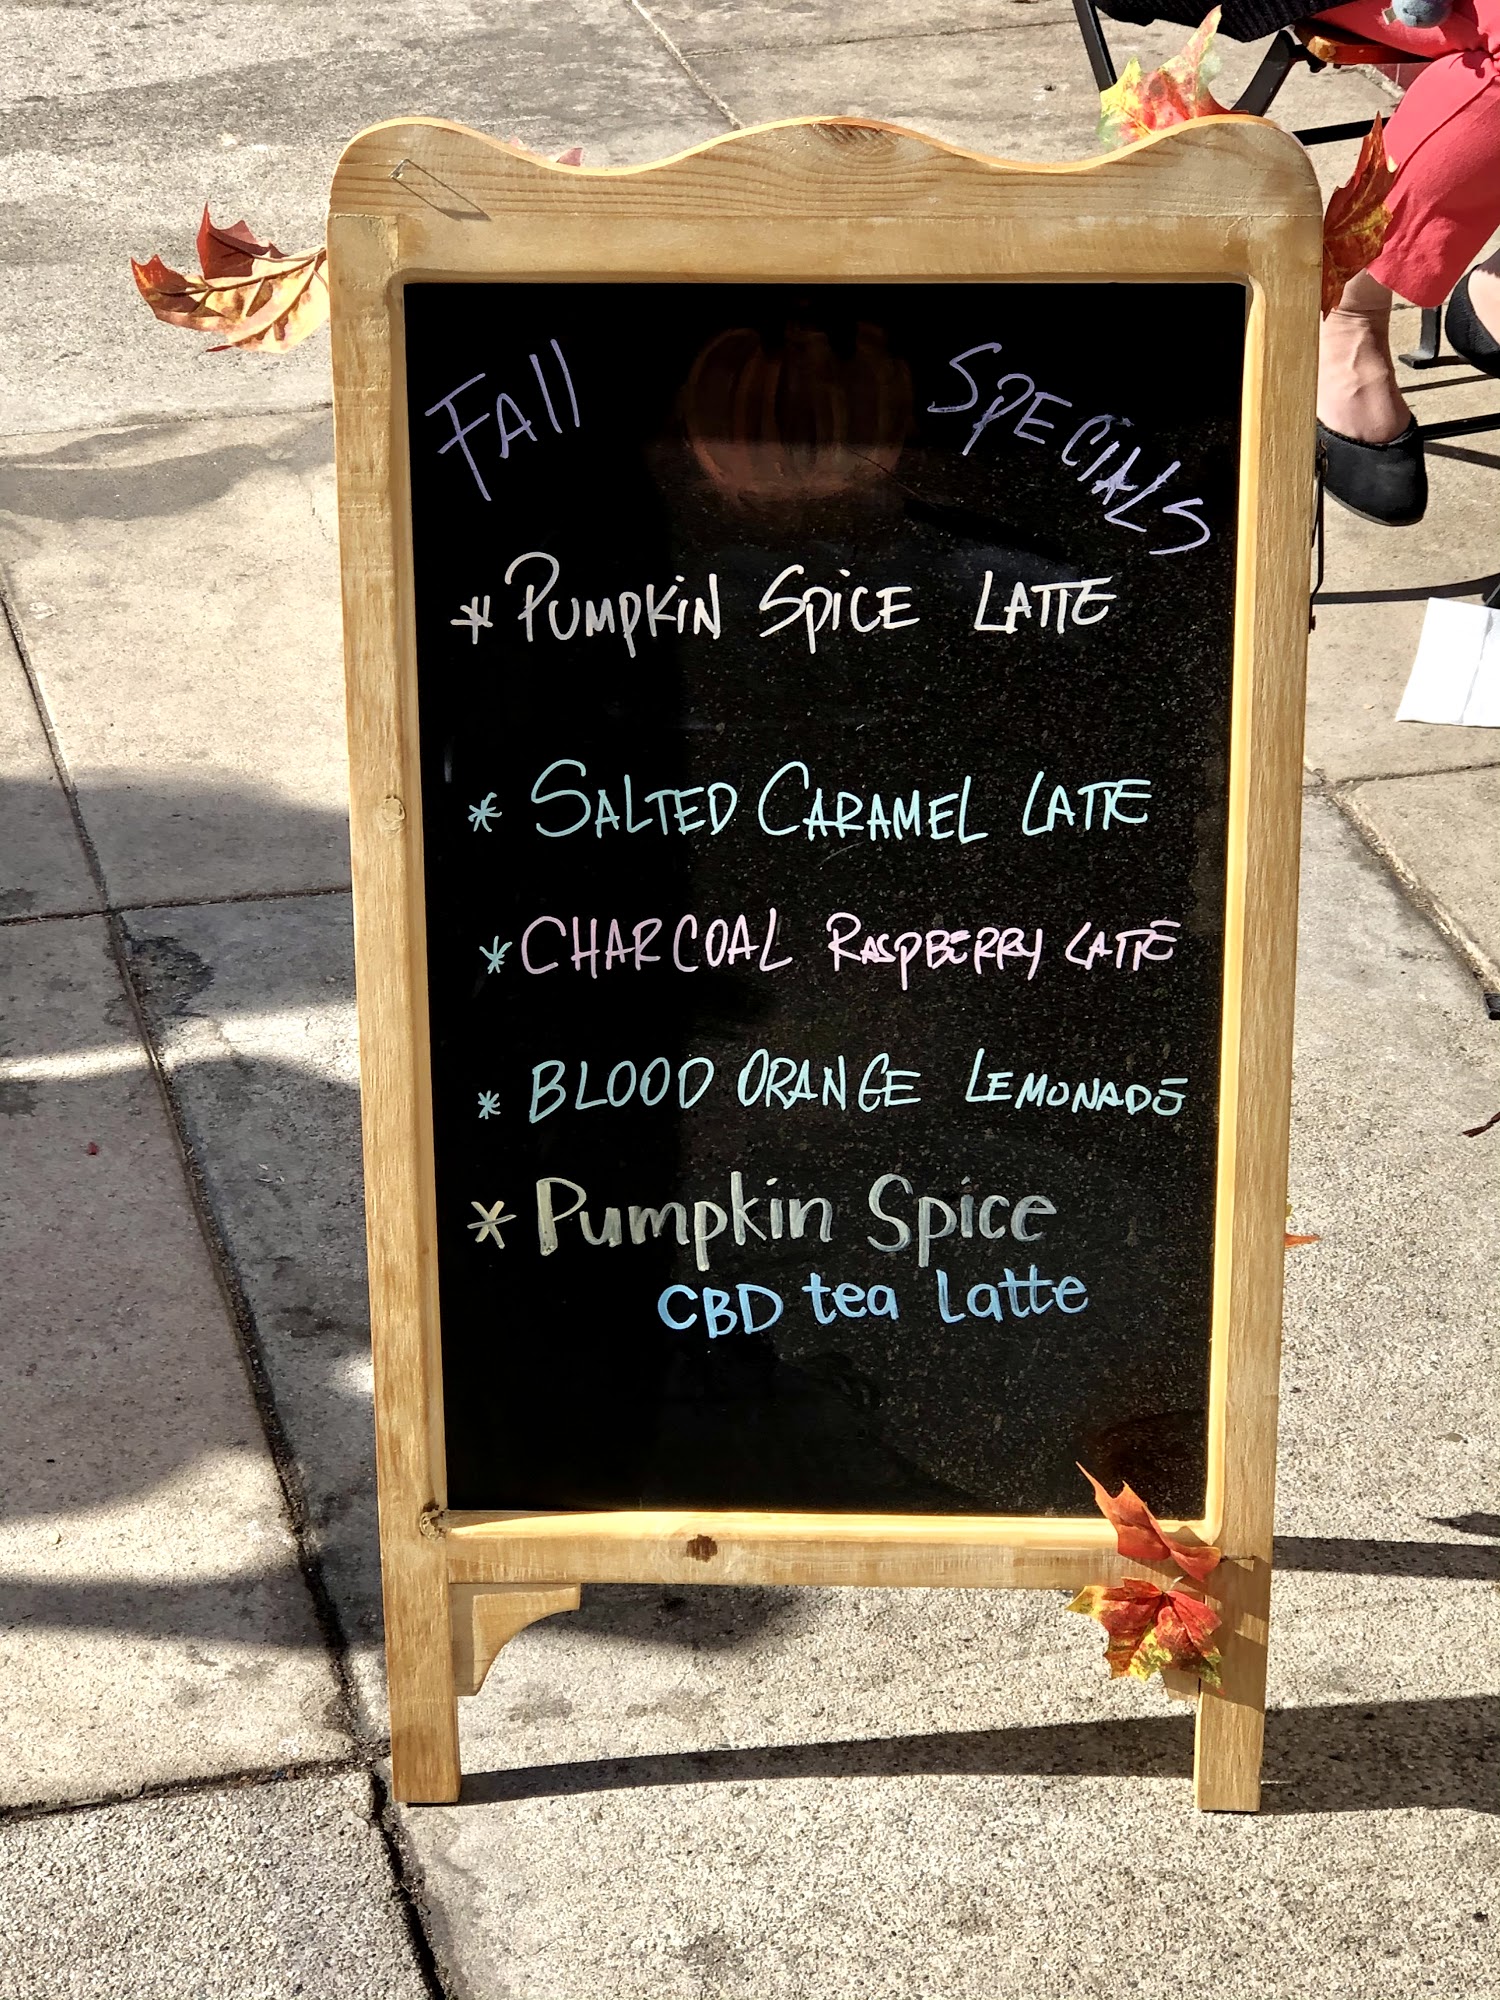 Fall SPECIALS
* PUMPKIN SPICE LATTE
* SALTED CARAMEL LATTE
* CHARCOAL RASPBERRY LATTE
* BLOOD ORANGE LEMONADE
* Pumpkin Spice
CBD tea Latte